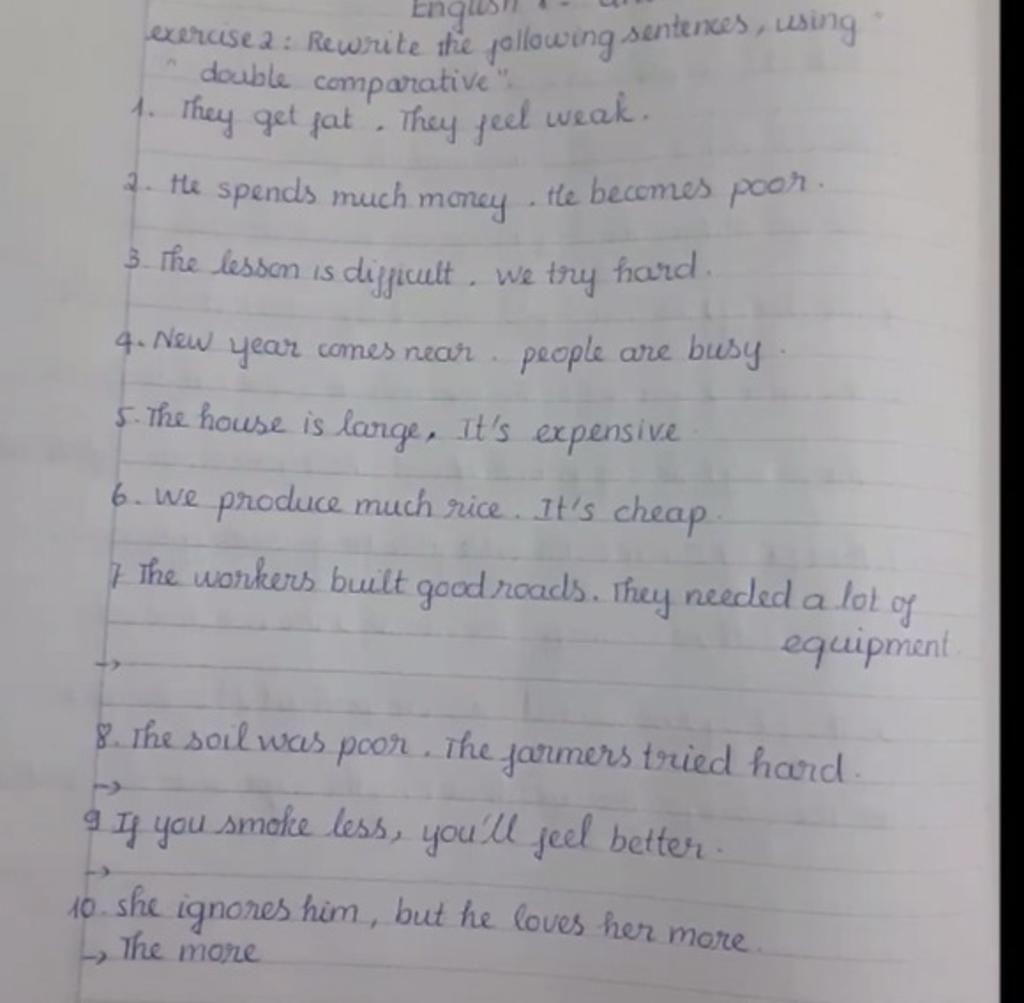 English
exercise 2: Rewrite the following sentences, using
" double comparative".
1. They get fat. They feel weak.
2. He spends much money. He becomes poor.
3. The lesson is difficult. we try hard.
4. New year comes near. people are busy.
5. The house is large, It's expensive
6. we produce much rice. It's cheap.
7 The workers built good roads. They needed a lot of
equipment.
→
8. The soil was poor. The farmers tried hard.
→
9 If you smoke less, you'll feel better.
→
10. she ignores him, but he loves her more.
↳ The more